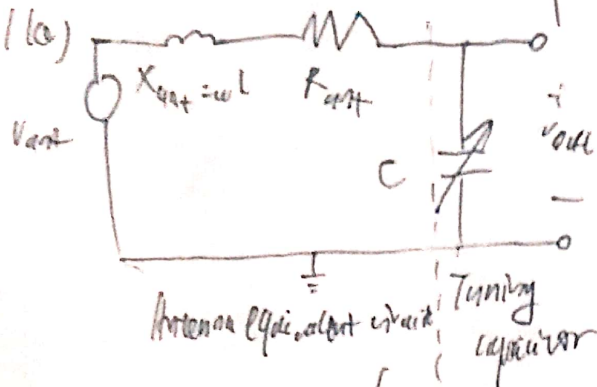 1(a)
X_ant = ωL
R_ant
V_ant
+
C
V_out
−
Antenna equivalent circuit
Tuning
capacitor